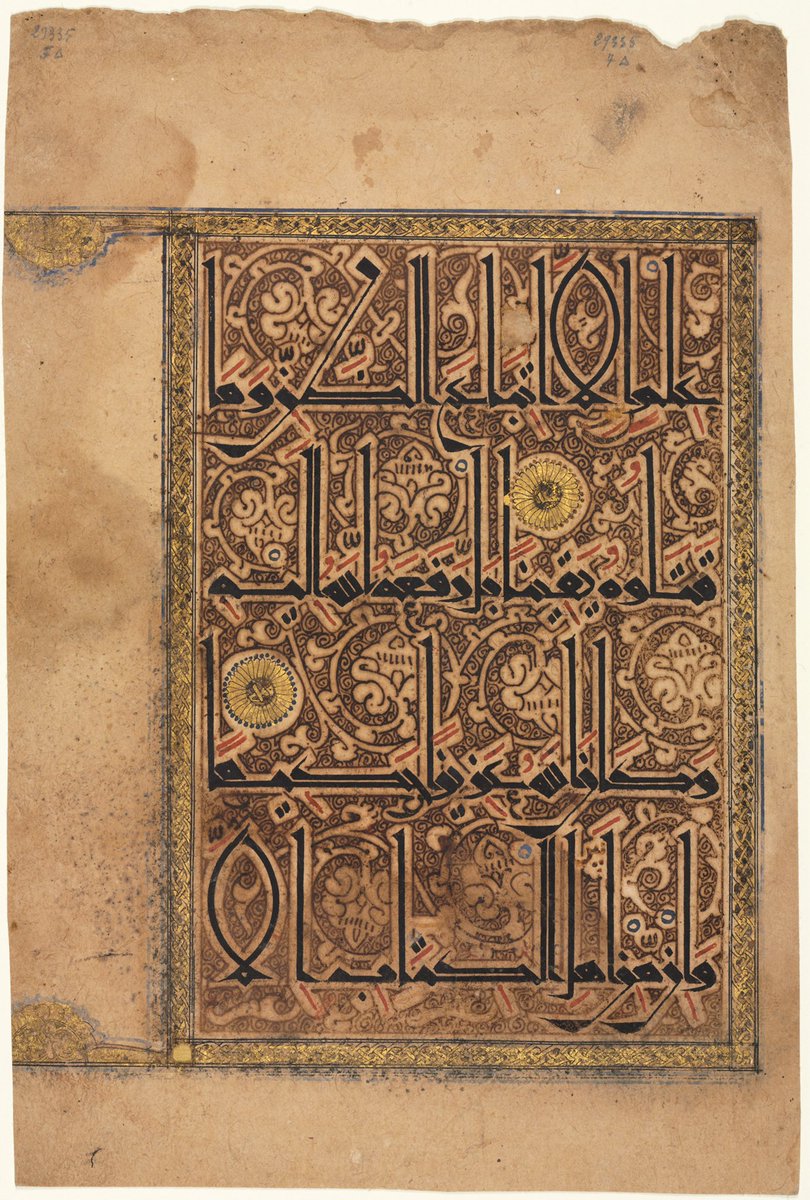 29335 29335
علم الا اتباع الظن وما
قتلوه يقينا بل رفعه الله اليه
وكان الله عزيزا حكيما
وان من اهل الكتاب الا